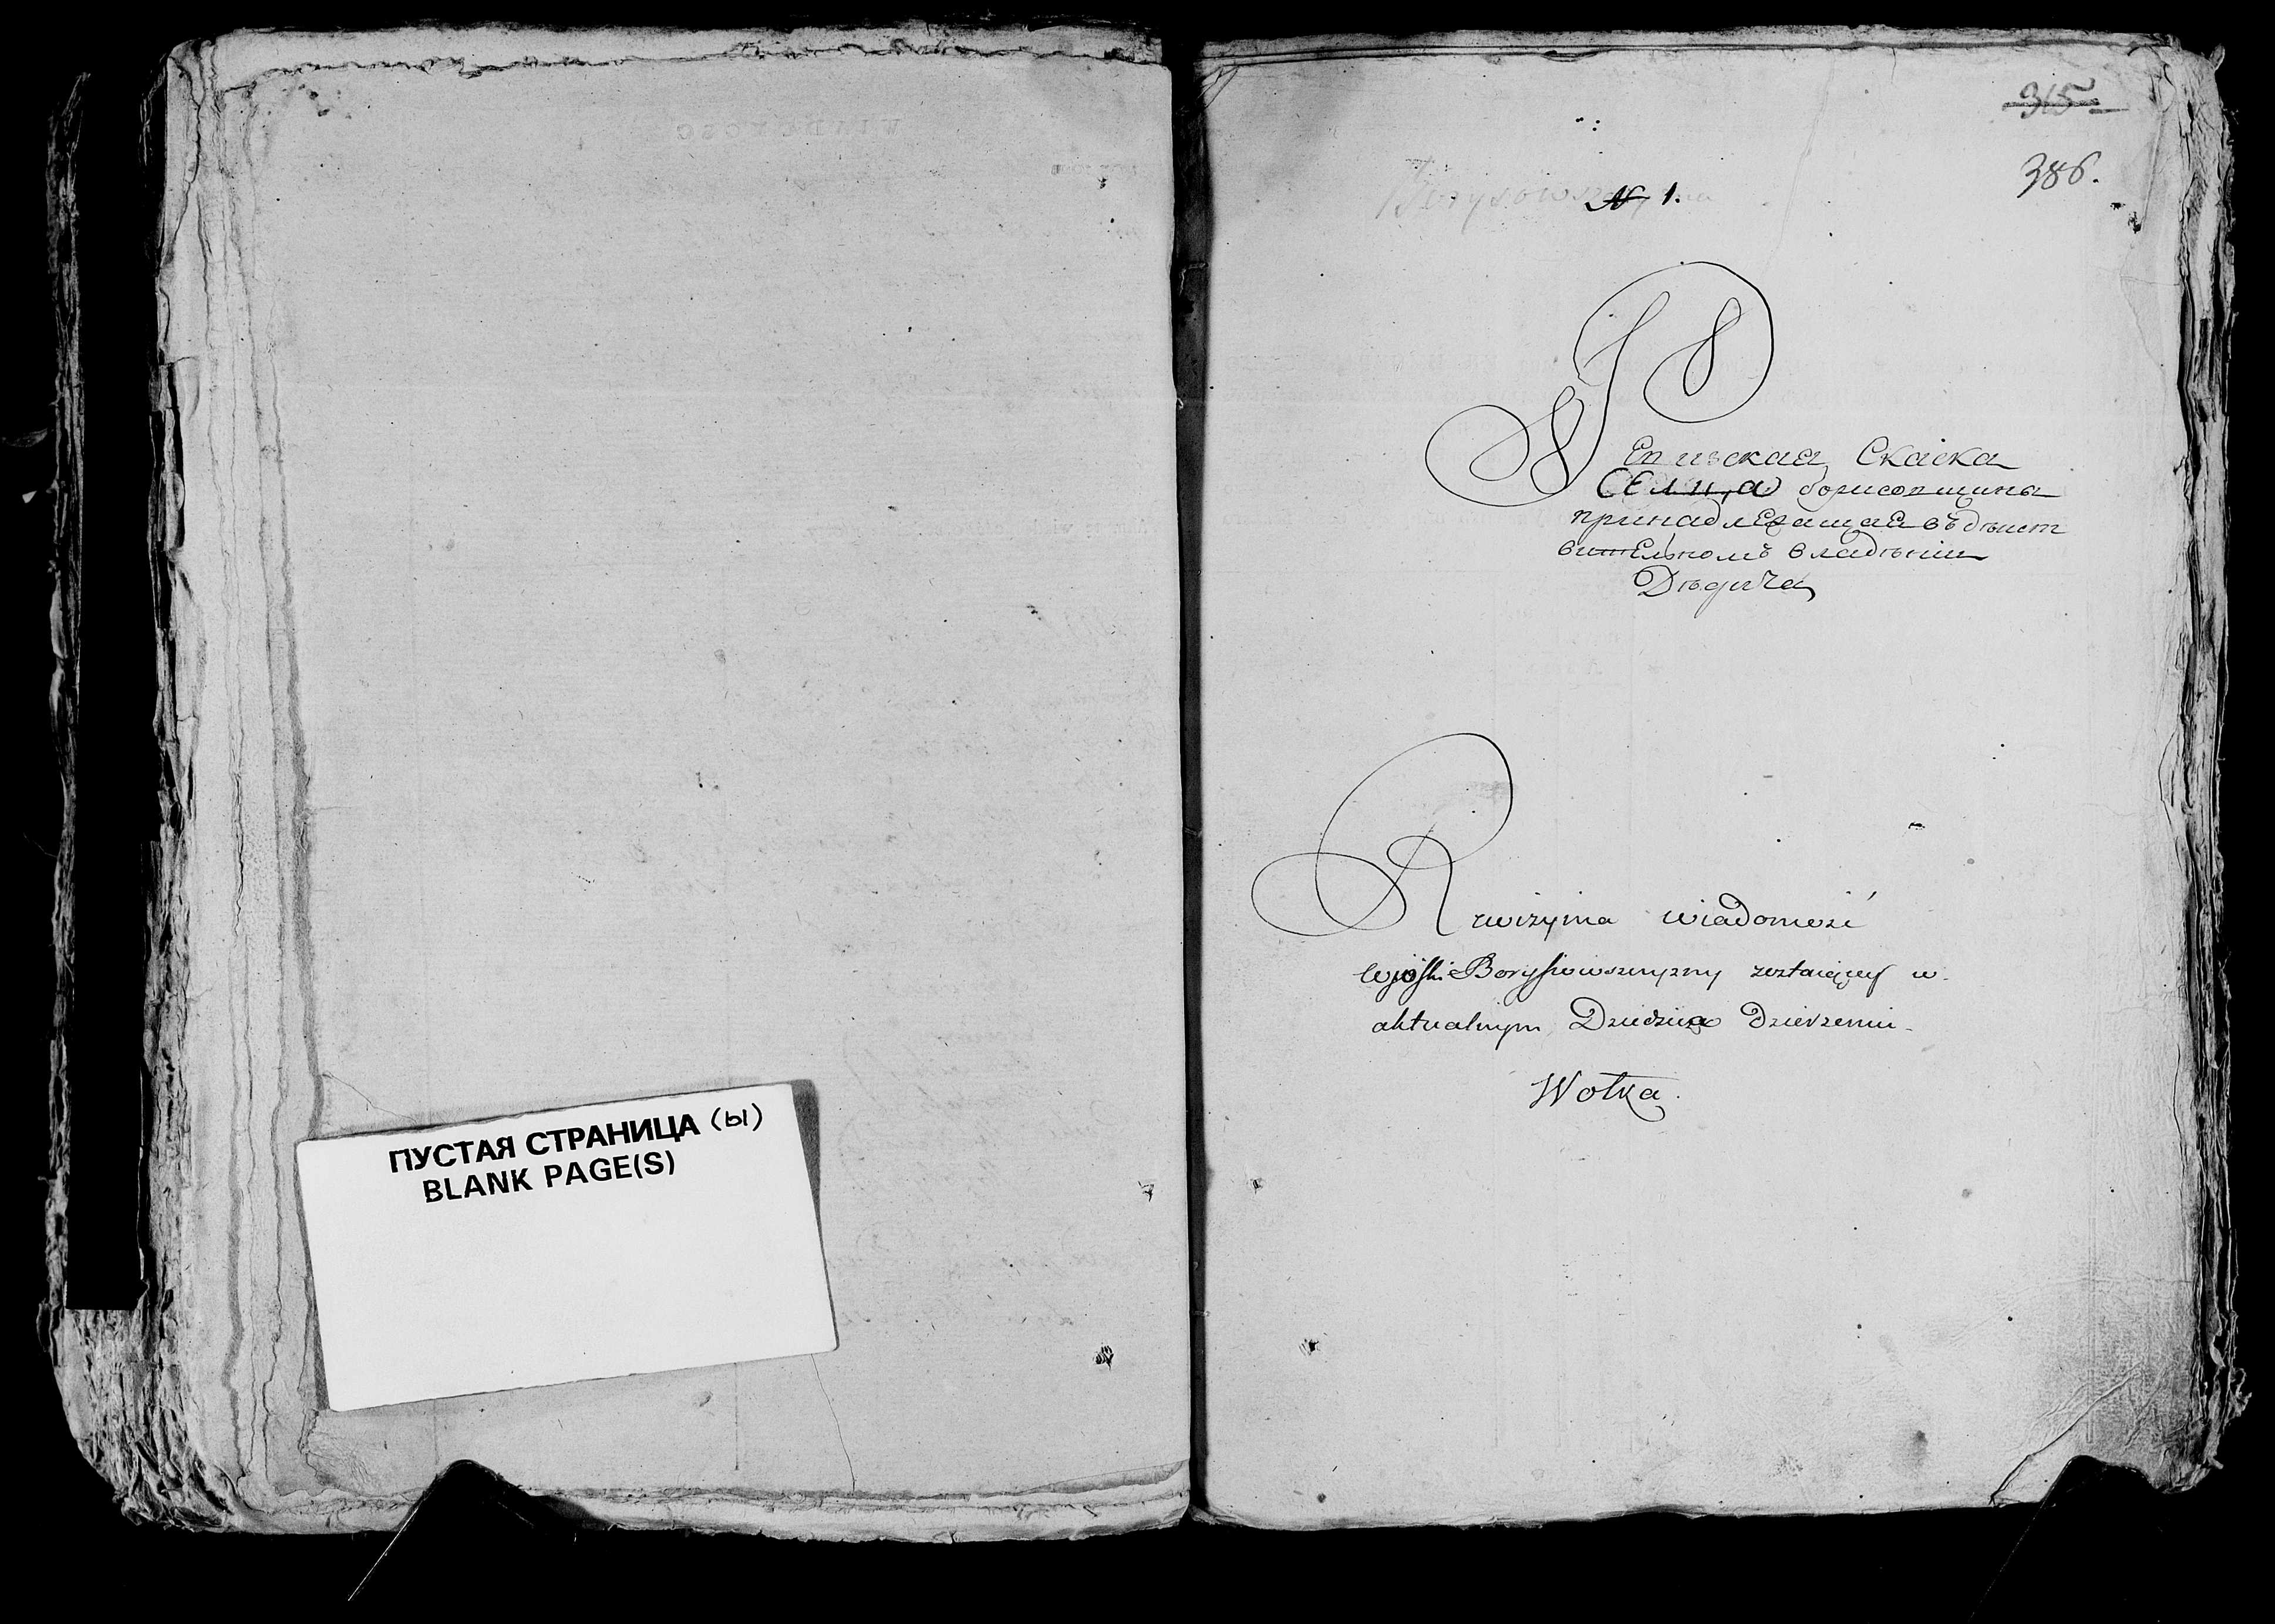 ПУСТАЯ СТРАНИЦА (ы)
BLANK PAGE(S)
315
386.
Borysowszczyzna
№ 1.
Ревизская Скаска
Селца борисовщины
принадлежащае въ дѣист
вителномъ владѣнiи
Дѣдича
Rewizyina wiadomość
wioski Borysowszczyzny zostaiącey w
aktualnym Dziedzica dzierżeniu
Wolka.